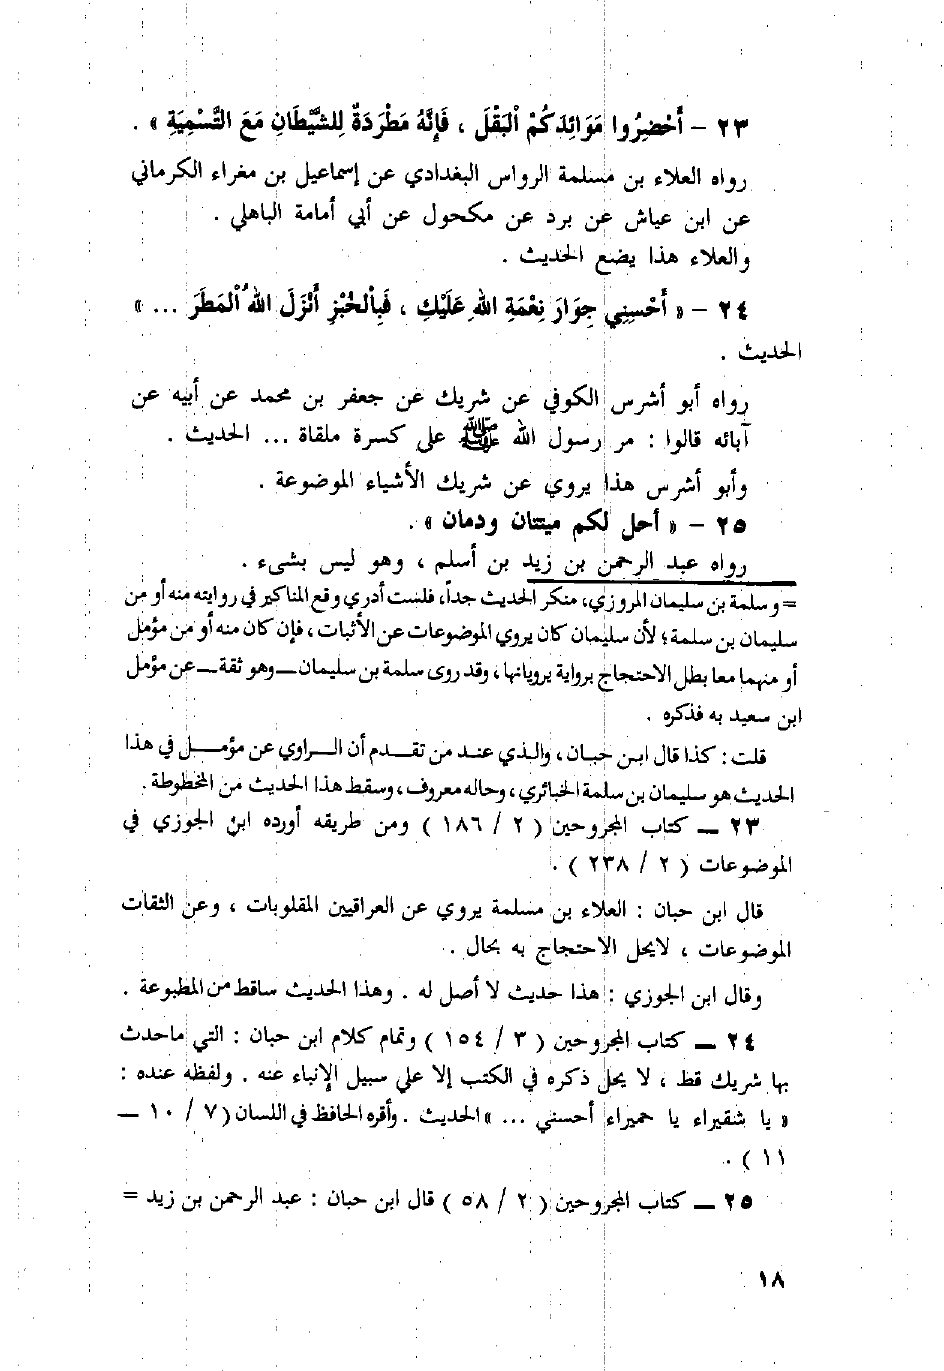 ٢٣ – أَحْضِرُوا مَوَائِدَكُمْ الْبَقْلَ ، فَإِنَّهُ مَطْرَدَةٌ لِلشَّيْطَانِ مَعَ التَّسْمِيَةِ » .
رواه العلاء بن مسلمة الرواس البغدادي عن إسماعيل بن مغراء الكرماني
عن ابن عياش عن برد عن مكحول عن أبي أمامة الباهلي .
والعلاء هذا يضع الحديث .
٢٤ – « أَحْسِنِي جِوَارَ نِعْمَةِ اللهِ عَلَيْكِ ، فَبِالْخُبْزِ أَنْزَلَ اللهُ الْمَطَرَ ... »
الحديث .
رواه أبو أشرس الكوفي عن شريك عن جعفر بن محمد عن أبيه عن
آبائه قالوا : مر رسول الله ﷺ على كسرة ملقاة ... الحديث .
وأبو أشرس هذا يروي عن شريك الأشياء الموضوعة .
٢٥ – « أحل لكم ميتتان ودمان » .
رواه عبد الرحمن بن زيد بن أسلم ، وهو ليس بشىء .
= وسلمة بن سليمان المروزي، منكر الحديث جداً، فلست أدري وقع المناكير في روايته منه أو من
سليمان بن سلمة؛ لأن سليمان كان يروي الموضوعات عن الأثبات ، فإن كان منه أو من مؤمل
أو منهما معا بطل الاحتجاج برواية يرويانها ، وقد روى سلمة بن سليمان ــ وهو ثقة ــ عن مؤمل
ابن سعيد به فذكره .
قلت : كذا قال ابن حبان ، والذي عند من تقدم أن الراوي عن مؤمل في هذا
الحديث هو سليمان بن سلمة الخبائري ، وحاله معروف ، وسقط هذا الحديث من المخطوطة .
٢٣ ــ كتاب المجروحين ( ٢ / ١٨٦ ) ومن طريقه أورده ابن الجوزي في
الموضوعات ( ٢ / ٢٣٨ ) .
قال ابن حبان : العلاء بن مسلمة يروي عن العراقيين المقلوبات ، وعن الثقات
الموضوعات ، لايحل الاحتجاج به بحال .
وقال ابن الجوزي : هذا حديث لا أصل له . وهذا الحديث ساقط من المطبوعة .
٢٤ ــ كتاب المجروحين ( ٣ / ١٥٤ ) وتمام كلام ابن حبان : التي ماحدث
بها شريك قط ، لا يحل ذكره في الكتب إلا على سبيل الإنباء عنه . ولفظه عنده :
« يا شقيراء يا حميراء أحسني ... » الحديث . وأقره الحافظ في اللسان ( ٧ / ١٠ ــ
١١ ) .
٢٥ ــ كتاب المجروحين ( ٢ / ٥٨ ) قال ابن حبان : عبد الرحمن بن زيد =
١٨